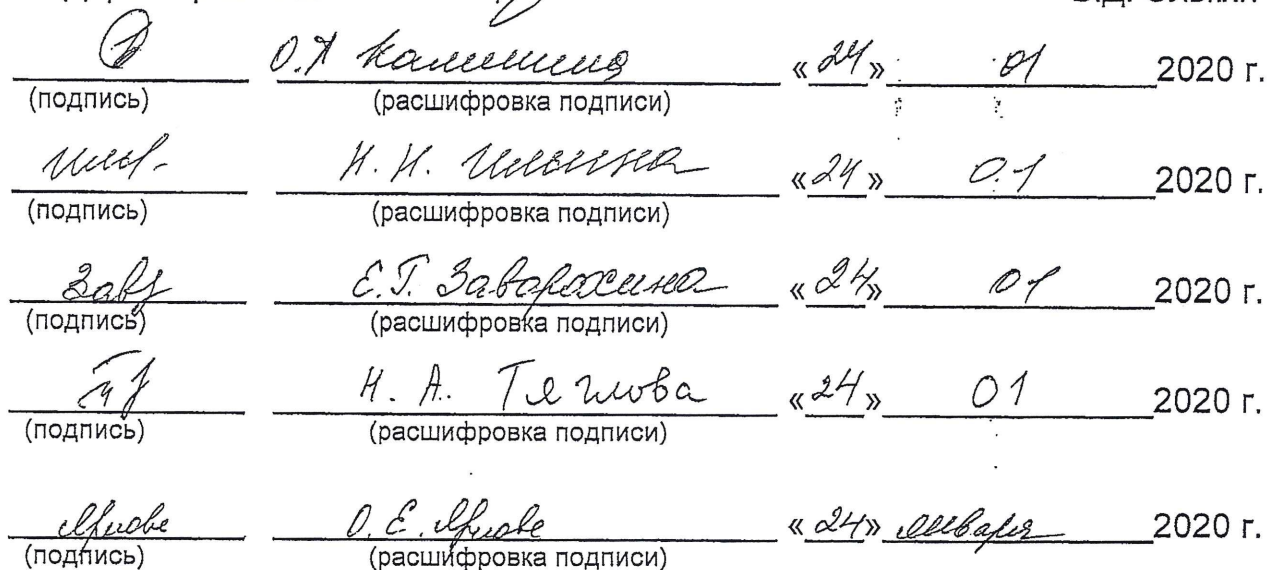 О.А Калинина «24» 01 2020 г.
(подпись) (расшифровка подписи)
Ильи- Н. Н. Ильина «24» 01 2020 г.
(подпись) (расшифровка подписи)
Завз Е.Г. Заворохина «24» 01 2020 г.
(подпись) (расшифровка подписи)
Н. А. Тяглова «24» 01 2020 г.
(подпись) (расшифровка подписи)
О. Е. «24» января 2020 г.
(подпись) (расшифровка подписи)